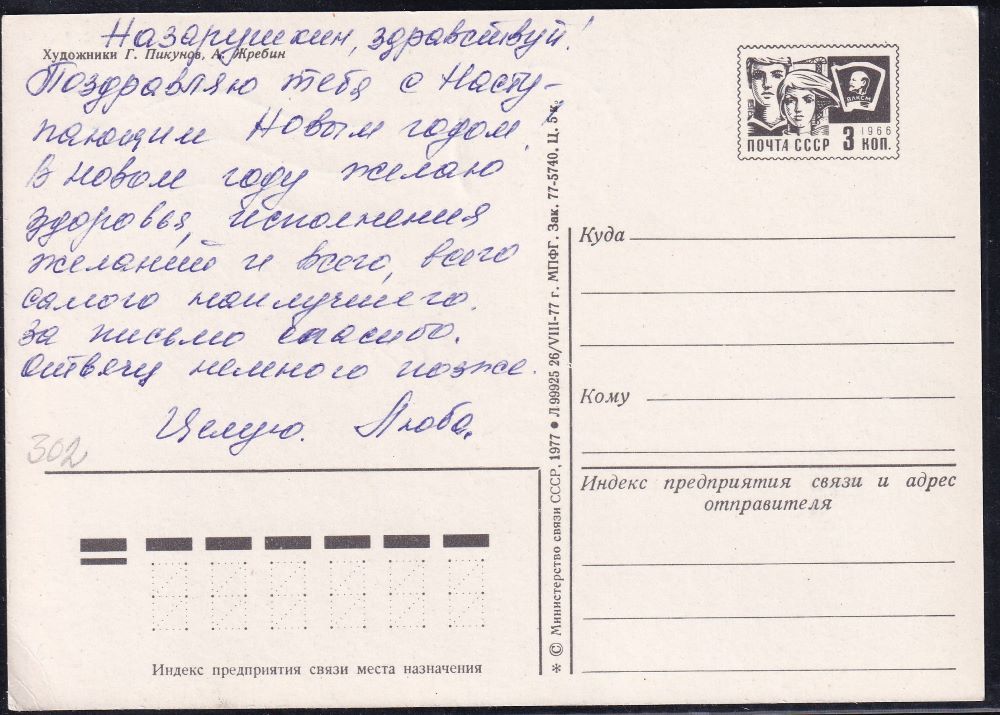 Назарушкин, здравствуй!
Художники Г. Пикунов, А. Жребин
Поздравляю тебя с Насту-
пающим Новым годом!
В новом году желаю
здоровья, исполнения
желаний и всего, всего
самого наилучшего.
За письмо спасибо.
Отвечу немного позже.
Целую. Люба.
302
Индекс предприятия связи места назначения
* © Министерство связи СССР, 1977 ● Л 99925 26/VIII-77 г. МПФГ. Зак. 77-5740. Ц. 5 к.
ВЛКСМ
1966
ПОЧТА СССР 3 КОП.
Куда
Кому
Индекс предприятия связи и адрес
отправителя